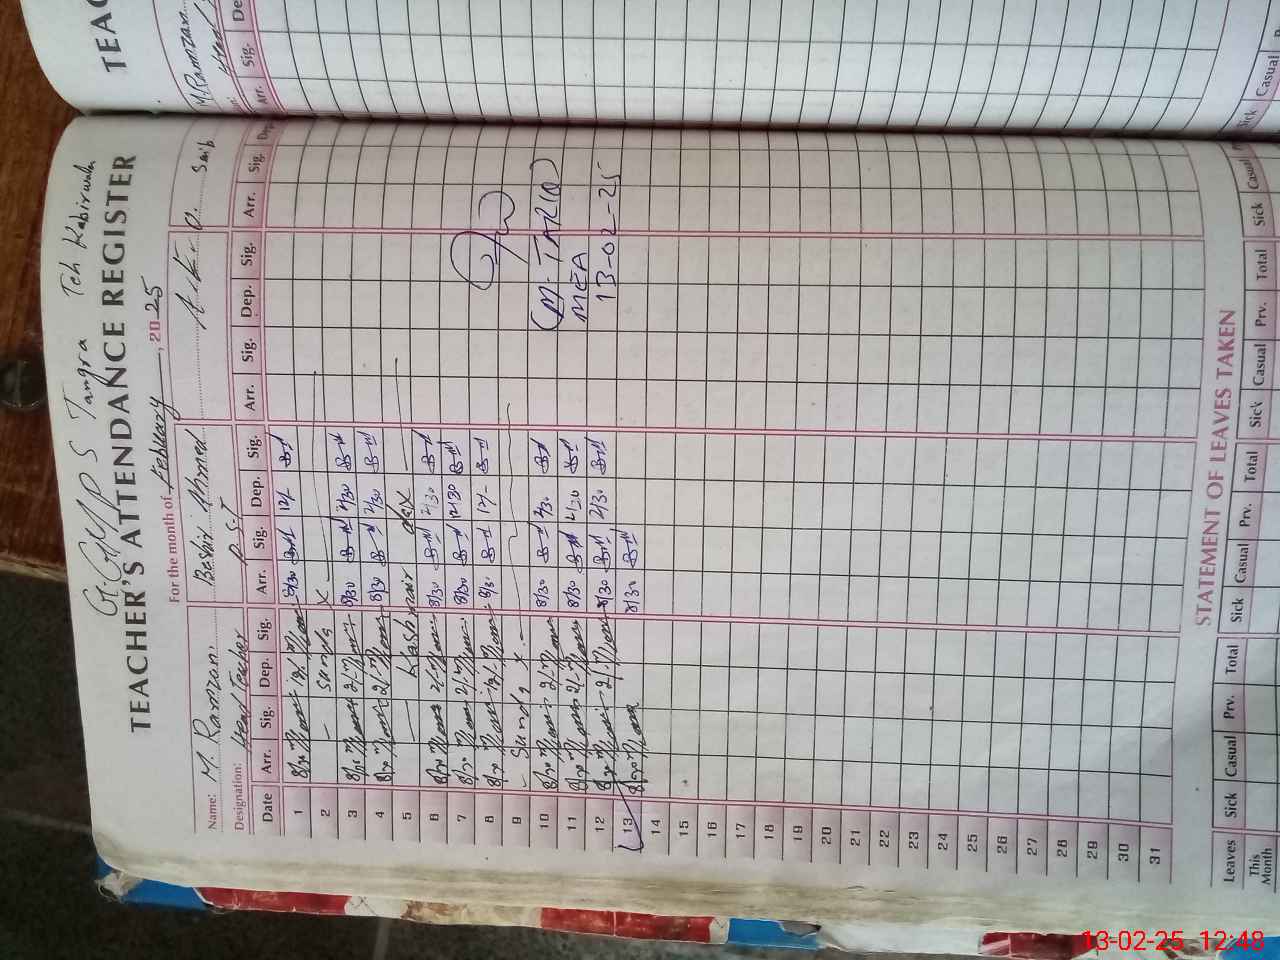 Tangra Teh Kabirwala
TEACHER'S ATTENDANCE REGISTER
For the month of February, 2025
Name: M. Ramzan. Beshir Ahmed
Designation: Head Teacher P.S.T
Date Arr. Sig. Dep. Sig. Arr. Sig. Dep. Sig. Arr. Sig. Dep. Sig. Arr. Sig. Dep.
1 8/30 12/- 8/30 12/-
2 - Sunday X
3 8/30 2/- 8/30 2/30
4 8/30 2/- 8/30 2/30
5 Kashmir day
6 8/30 2/- 8/30 2/30
7 8/30 2/- 8/30 12/30
8 8/30 12/- 8/30 12/-
9 - Sunday X
10 8/30 2/- 8/30 2/30
11 8/30 2/- 8/30 2/30
12 8/30 2/- 8/30 2/30
13 8/30 8/30
14
15
16
17
18
19
20
21
22
23
24
25
26
27
28
29
30
31
(M. TARIQ)
MEA
13-02-25
STATEMENT OF LEAVES TAKEN
Leaves Sick Casual Prv. Total Sick Casual Prv. Total Sick Casual Prv. Total Sick Casual
This Month
TEAC
M. Ramzan
Head
Arr. Sig. De
Sick Casual
13-02-25 12:48